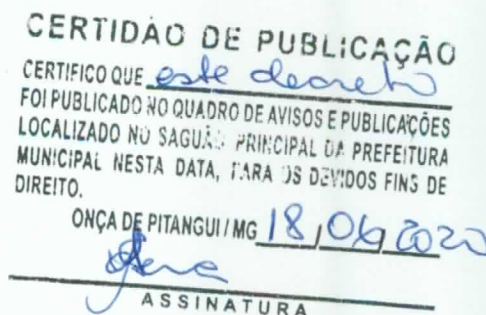 CERTIDÃO DE PUBLICAÇÃO
CERTIFICO QUE este decreto
FOI PUBLICADO NO QUADRO DE AVISOS E PUBLICAÇÕES
LOCALIZADO NO SAGUÃO PRINCIPAL DA PREFEITURA
MUNICIPAL NESTA DATA, PARA OS DEVIDOS FINS DE
DIREITO.
ONÇA DE PITANGUI / MG 18 / 06 / 2020
ASSINATURA